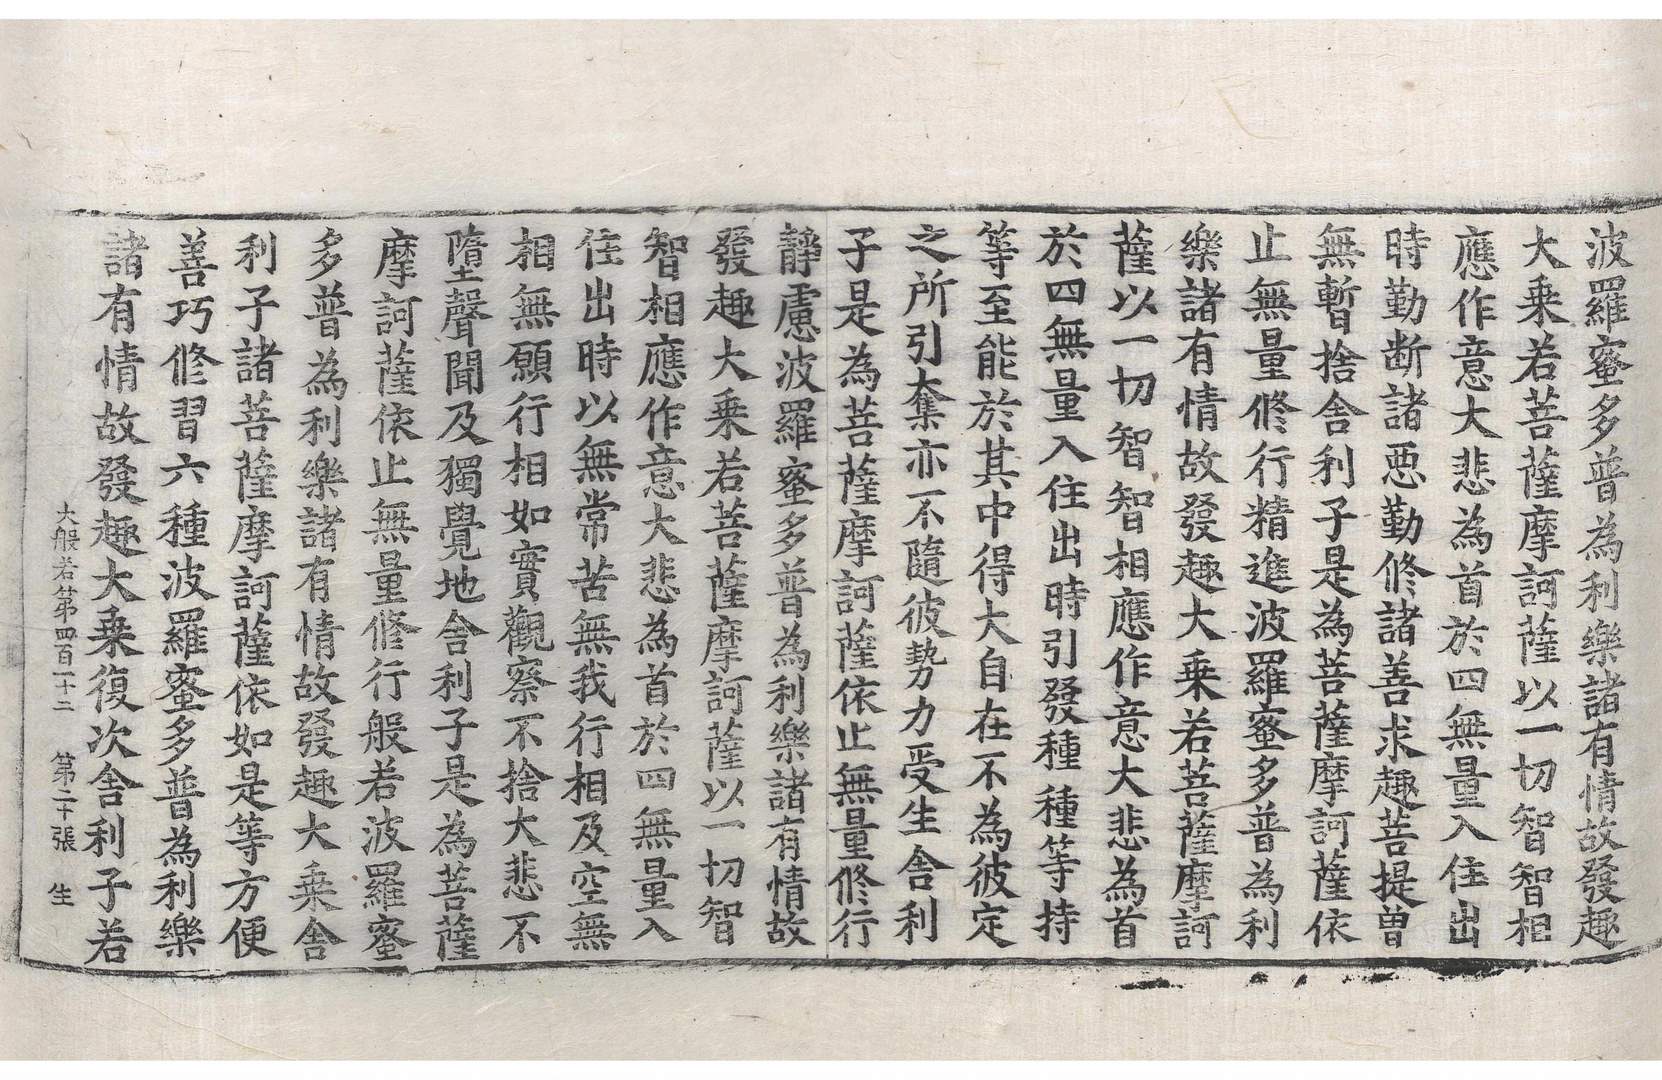 波羅蜜多普為利樂諸有情故發趣
大乘若菩薩摩訶薩以一切智智相
應作意大悲為首於四無量入住出
時勤断諸惡勤修諸善求趣菩提曾
無暫捨舍利子是為菩薩摩訶薩依
止無量修行精進波羅蜜多普為利
樂諸有情故發趣大乘若菩薩摩訶
薩以一切智智相應作意大悲為首
於四無量入住出時引發種種等持
等至能於其中得大自在不為彼定
之所引奪亦不隨彼勢力受生舍利
子是為菩薩摩訶薩依止無量修行
靜慮波羅蜜多普為利樂諸有情故
發趣大乘若菩薩摩訶薩以一切智
智相應作意大悲為首於四無量入
住出時以無常苦無我行相及空無
相無願行相如實觀察不捨大悲不
墮聲聞及獨覺地舍利子是為菩薩
摩訶薩依止無量修行般若波羅蜜
多普為利樂諸有情故發趣大乘舍
利子諸菩薩摩訶薩依如是等方便
善巧修習六種波羅蜜多普為利樂
諸有情故發趣大乘復次舍利子若
大般若第四百一十二 第二十張 生